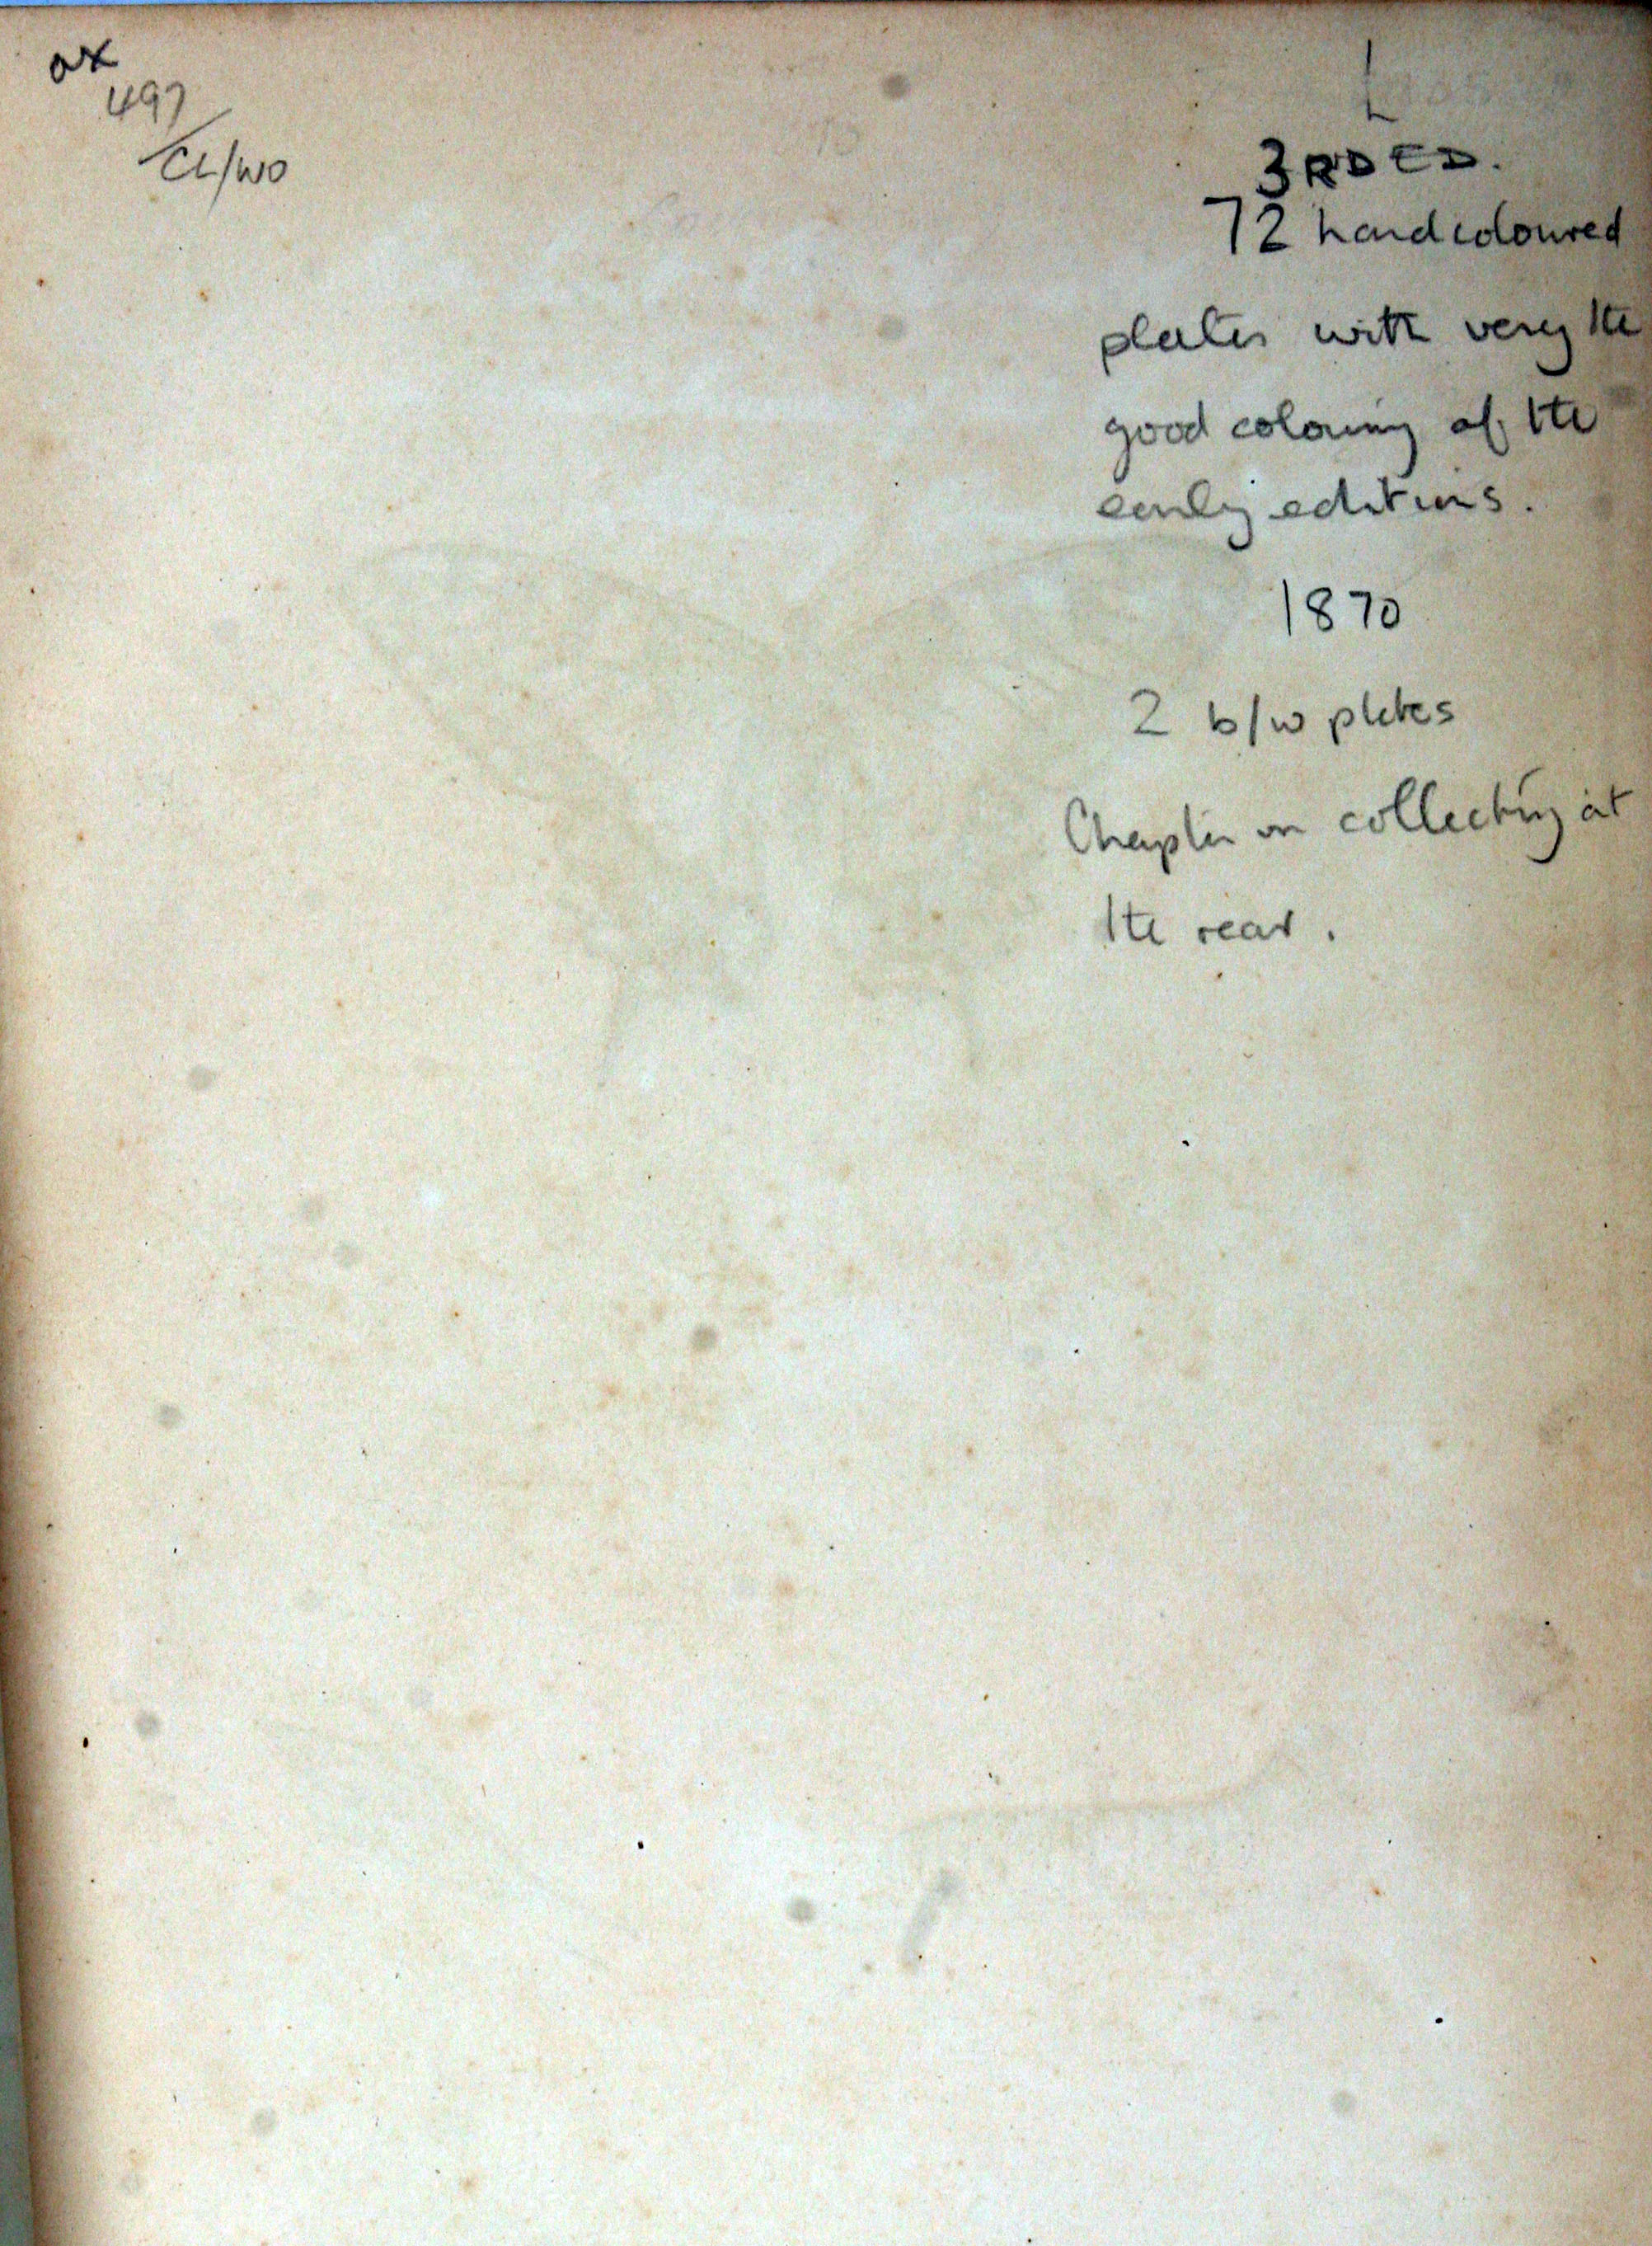 ox
497
CL/WO
3RD ED.
72 handcoloured
plates with very the
good colouring of the
early editions.
1870
2 b/w plates
Chapter on collecting at
the rear.